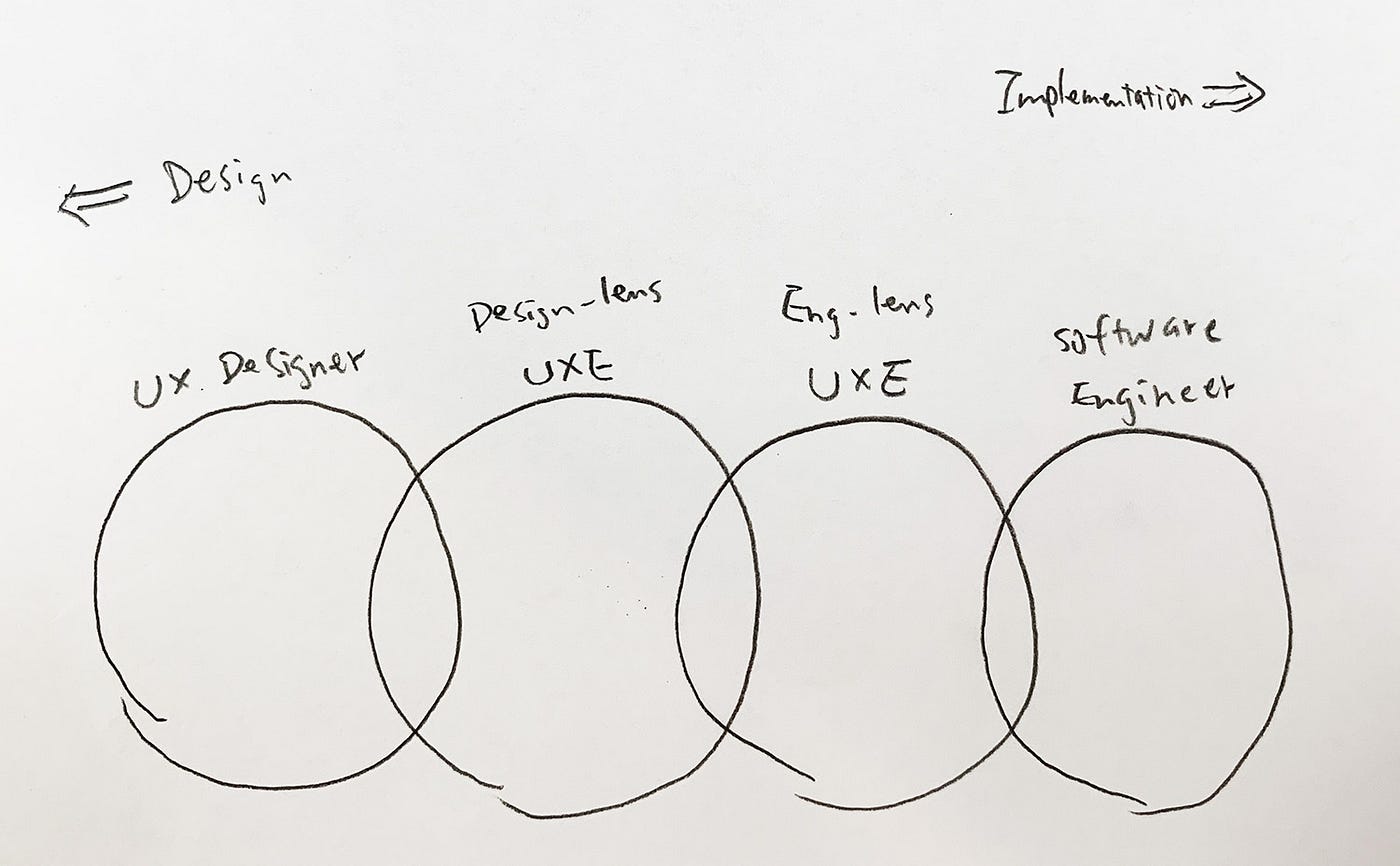 Implementation
Design
UX. Designer
Design-lens
UXE
Eng. lens
UXE
software
Engineer